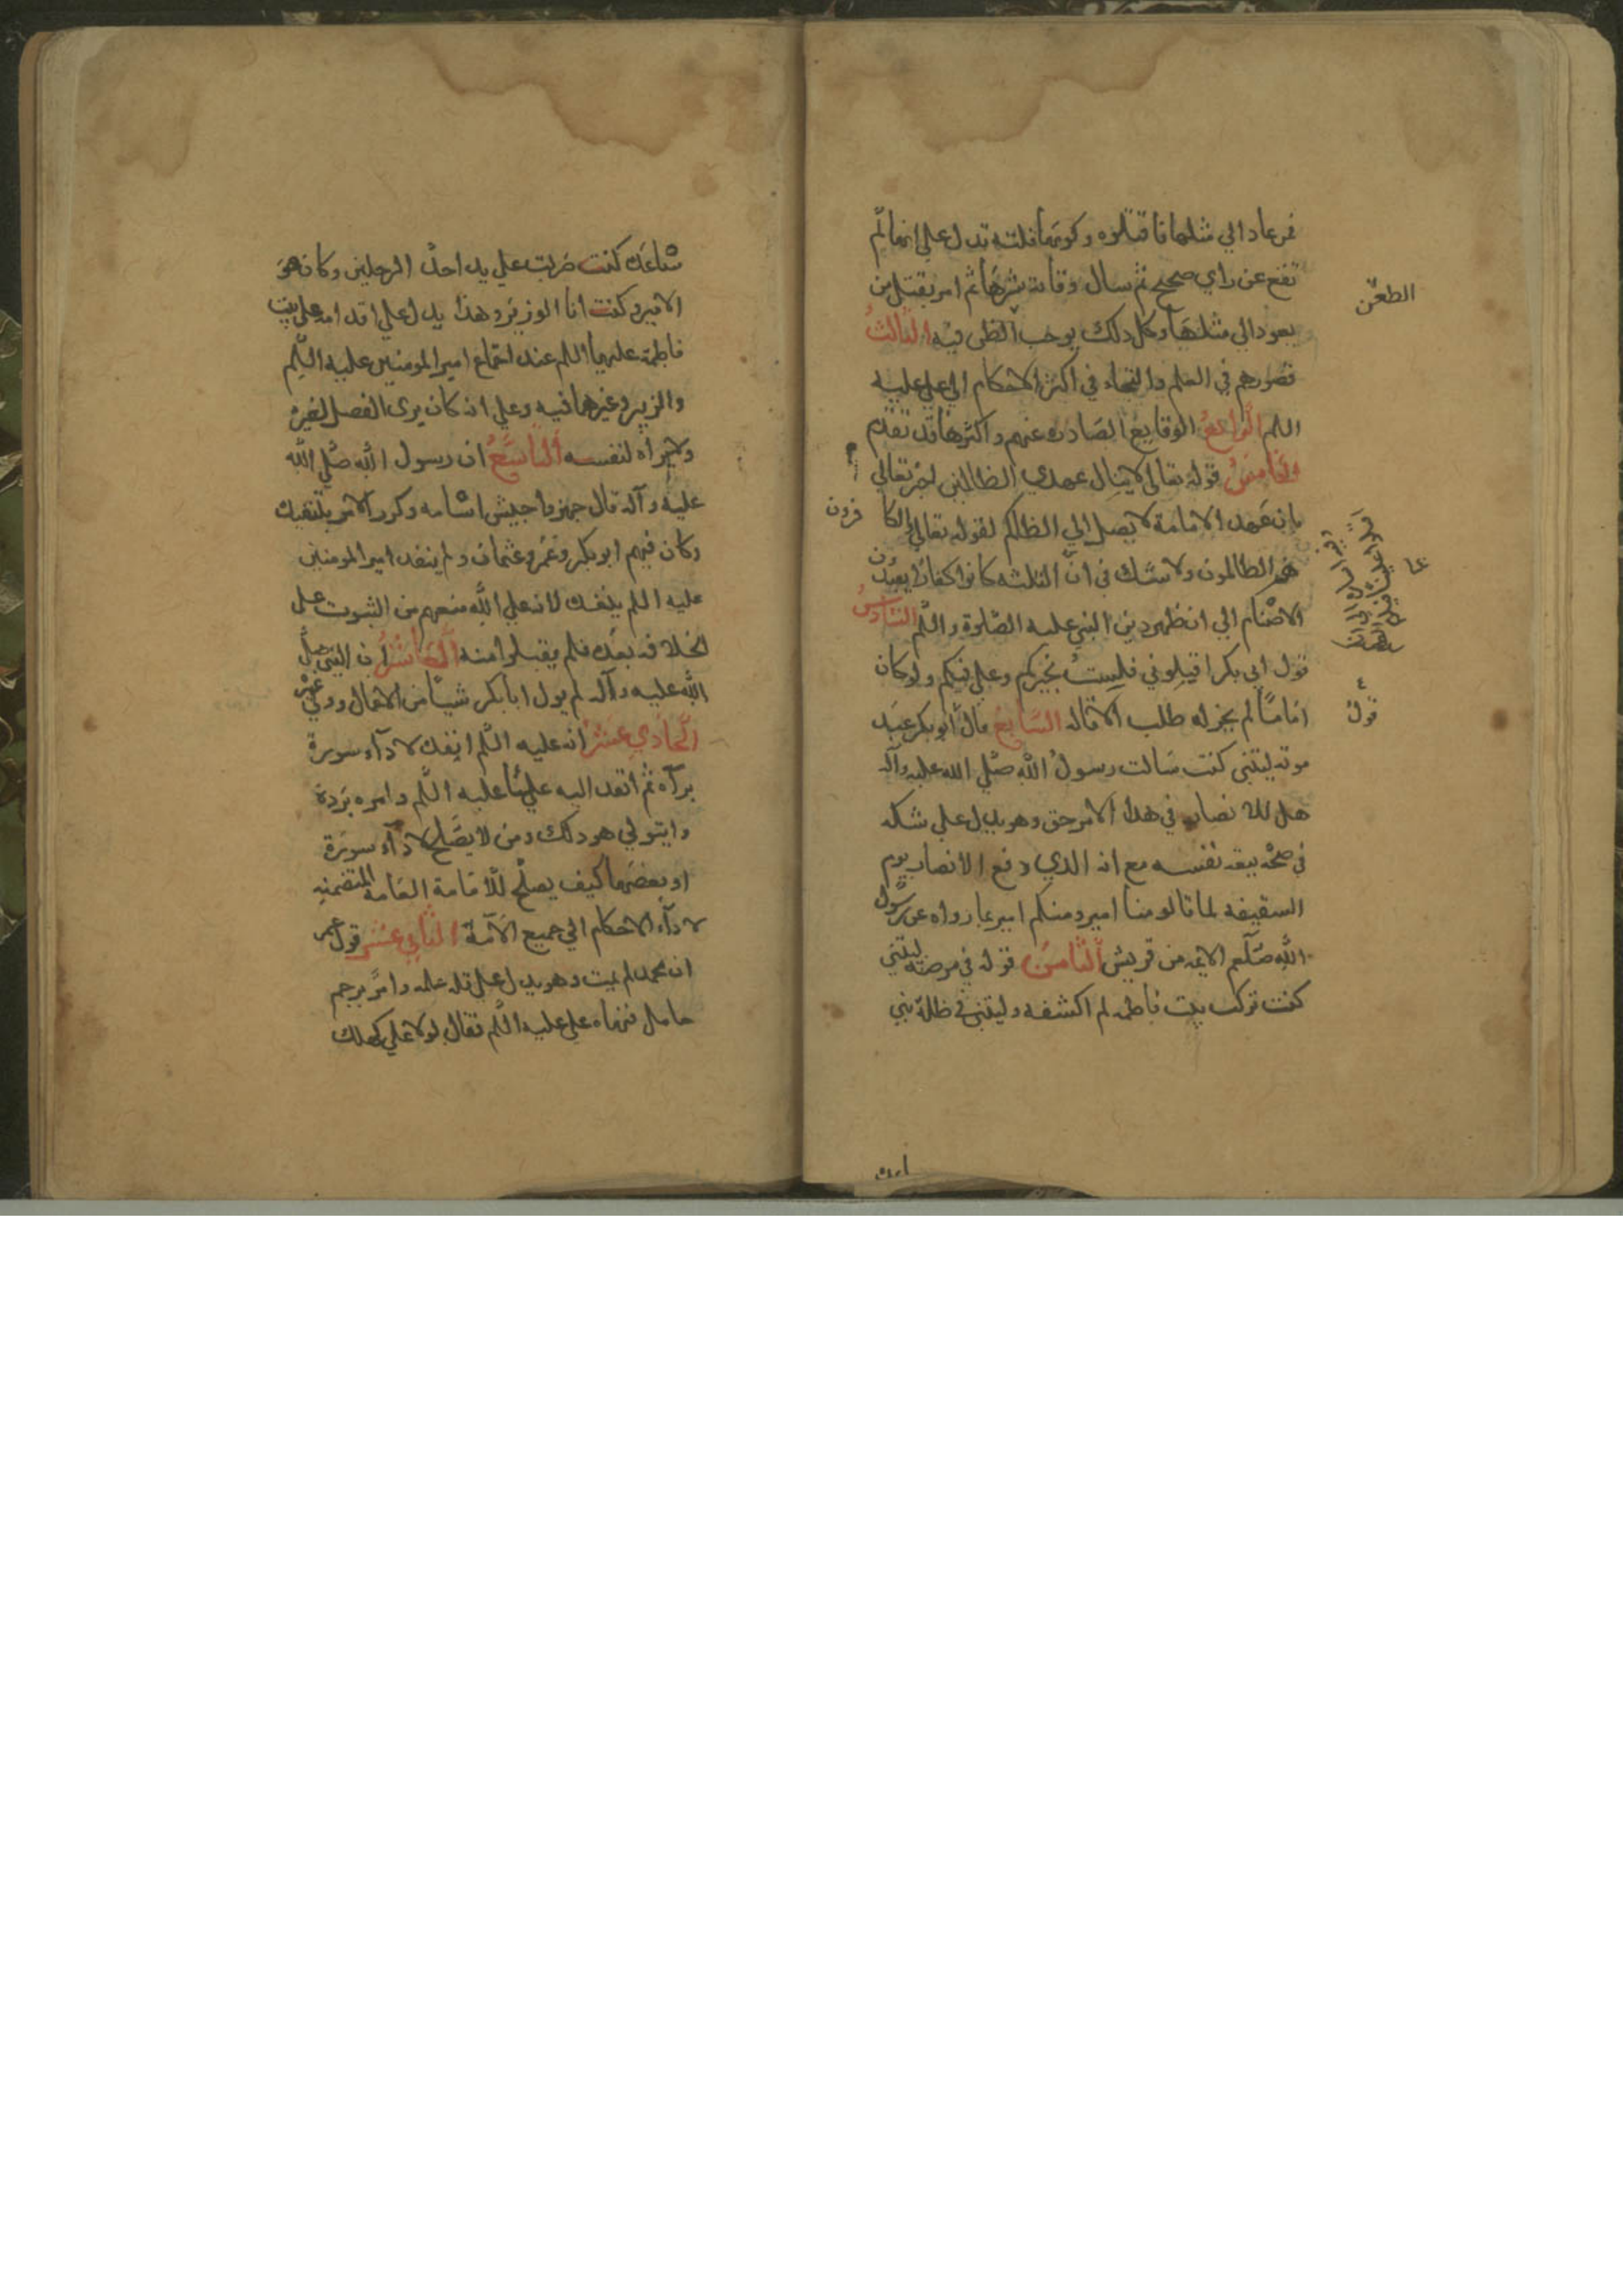 فمن عاد الي مثلها فاقتلوه وكونها فلتة تدل علي انها لم
تقع عن راي صحيح ثم سال وقاية شرها ثم امر بقتل من
يعود الي مثلها وكل ذلك يوجب الطعن فيه الثالث
قصورهم في العلم والتجاء في اكثر الاحكام الي علي عليه
اللم الرابع الوقايع الصادرة عنهم واكثرها قد تقدم
الخامس قوله تعالى لا ينال عهدي الظالمين اخبر تعالي
بان عهد الامامة لا يصل الي الظالم لقوله تعالي والكا
فرون
هم الظالمون ولا شك في ان الثلثه كانوا كفارا يعبدون
الاصنام الي ان ظهر دين النبي عليه الصلوة واللم السادس
قول ابي بكر اقيلوني فلست بخيركم وعلي فيكم ولو كان
اماما لم يجز له طلب الاقاله السابع قال ابو بكر عند
موته ليتني كنت سالت رسول الله صلي الله عليه وآله
هل للانصار في هذا الامر حق وهو يدل علي شكه
في صحة بيعة نفسه مع انه الذي دفع الانصار يوم
السقيفه لما قالو منا امير ومنكم امير بما رواه عن رسول
الله صلعم الايمه من قريش الثامن قوله في مرضه ليتني
كنت تركت بيت فاطمه لم اكشفه وليتني في ظلة بني
الطعن
قول
ساعده كنت ضربت علي يد احد الرجلين وكان هو
الامير وكنت انا الوزير وهذا يدل علي اقدامه علي بيت
فاطمة عليها اللم عند اجتماع امير المومنين عليه اللم
والزبير وغيرهما فيه وعلي انه كان يرى الفضل لغيره
ولا يراه لنفسه التاسع ان رسول الله صلي الله
عليه وآله قال جهزوا جيش اسامه وكرر الامر بتنفيذه
وكان فيهم ابو بكر وعمر وعثمان ولم ينفد امير المومنين
عليه اللم
الخلافه بعده فلم يقبلوا منه العاشر ان النبي صلي
الله عليه وآله لم يول ابا بكر شيا من الاعمال وولي غيره
الحادي عشر انه عليه اللم انفده لادآء سورة
برآة ثم انفد اليه عليا عليه اللم وامره برده
وان يتولي هو ذلك ومن لا يصلح لادآء سورة
او بعضها كيف يصلح للامامة العامه المتضمنه
لادآء الاحكام الي جميع الامة الثاني عشر قول عمر
ان محمد لم يمت وهو يدل علي قلة علمه وامر برجم
حامل فنهاه علي عليه اللم فقال لولا علي لهلك